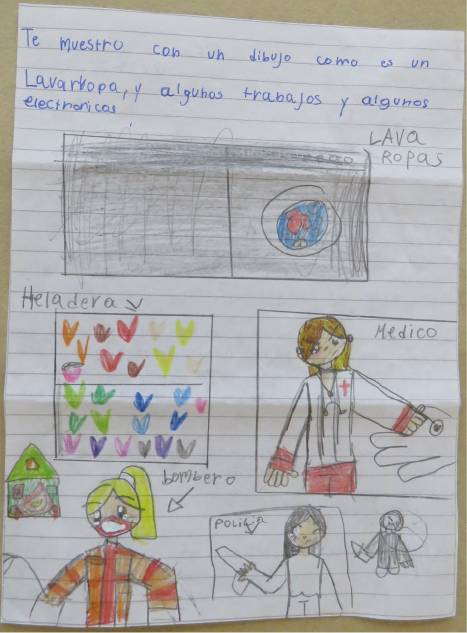 Te muestro con un dibujo como es un
Lavarropa, y algunos trabajos y algunos
electronicos
LAVA
ROPAS
Heladera
Medico
bombero
Policia